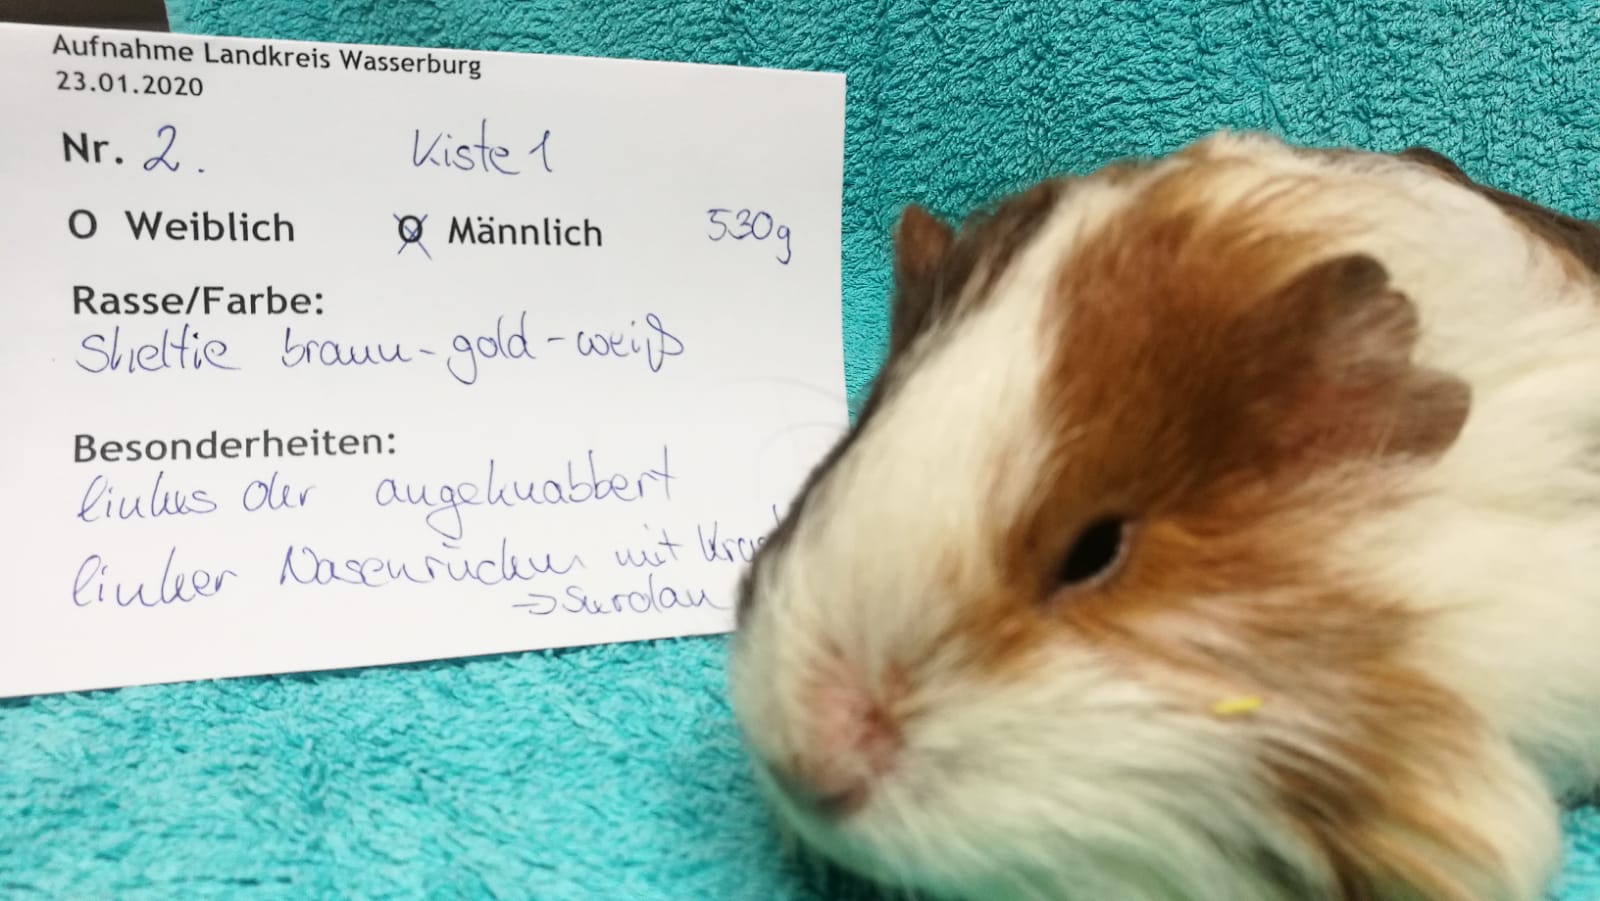 Aufnahme Landkreis Wasserburg
23.01.2020
Nr. 2. Kiste 1
O Weiblich O Männlich 530g
Rasse/Farbe:
Sheltie braun-gold-weiß
Besonderheiten:
linkes Ohr angeknabbert
linker Nasenrücken mit
→ Surolan